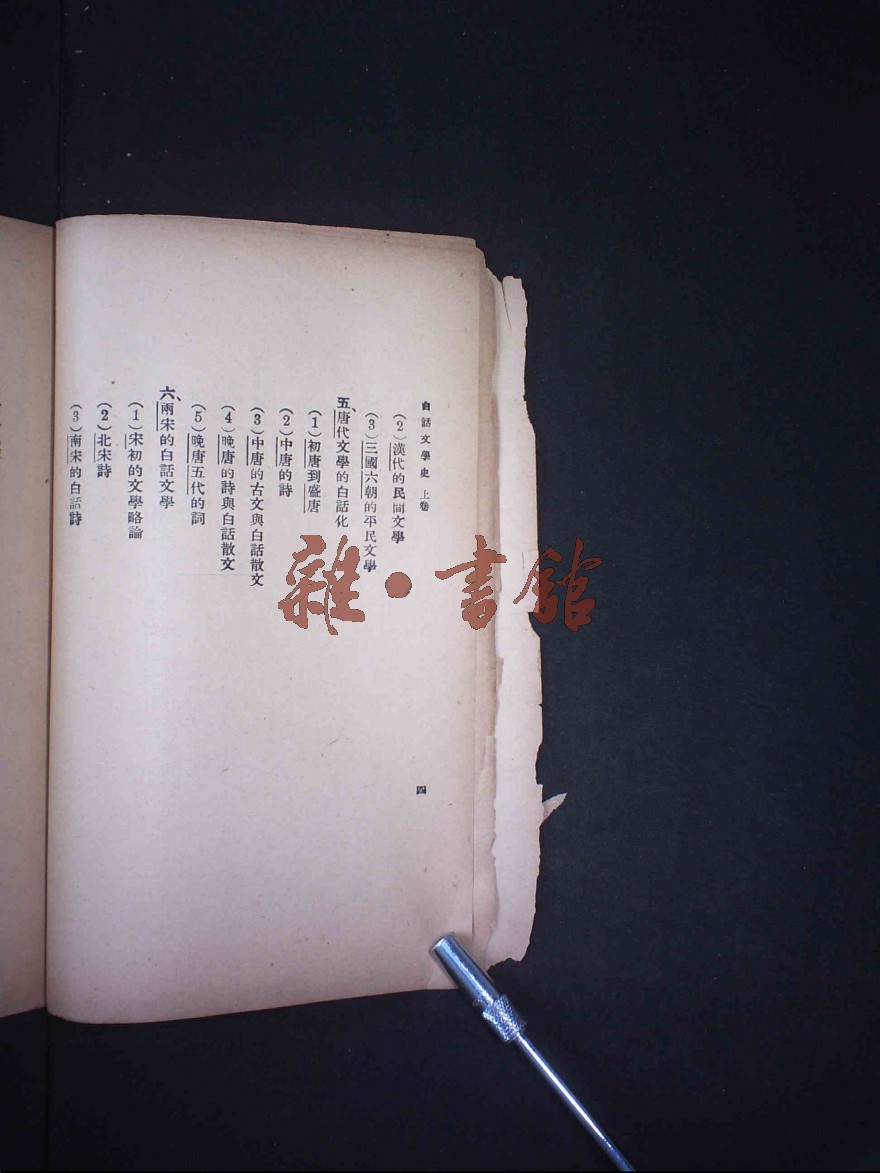 白話文學史 上卷
（2）漢代的民間文學
（3）三國六朝的平民文學
五、唐代文學的白話化
（1）初唐到盛唐
（2）中唐的詩
（3）中唐的古文與白話散文
（4）晚唐的詩與白話散文
（5）晚唐五代的詞
六、兩宋的白話文學
（1）宋初的文學略論
（2）北宋詩
（3）南宋的白話詩
四
雜·書館